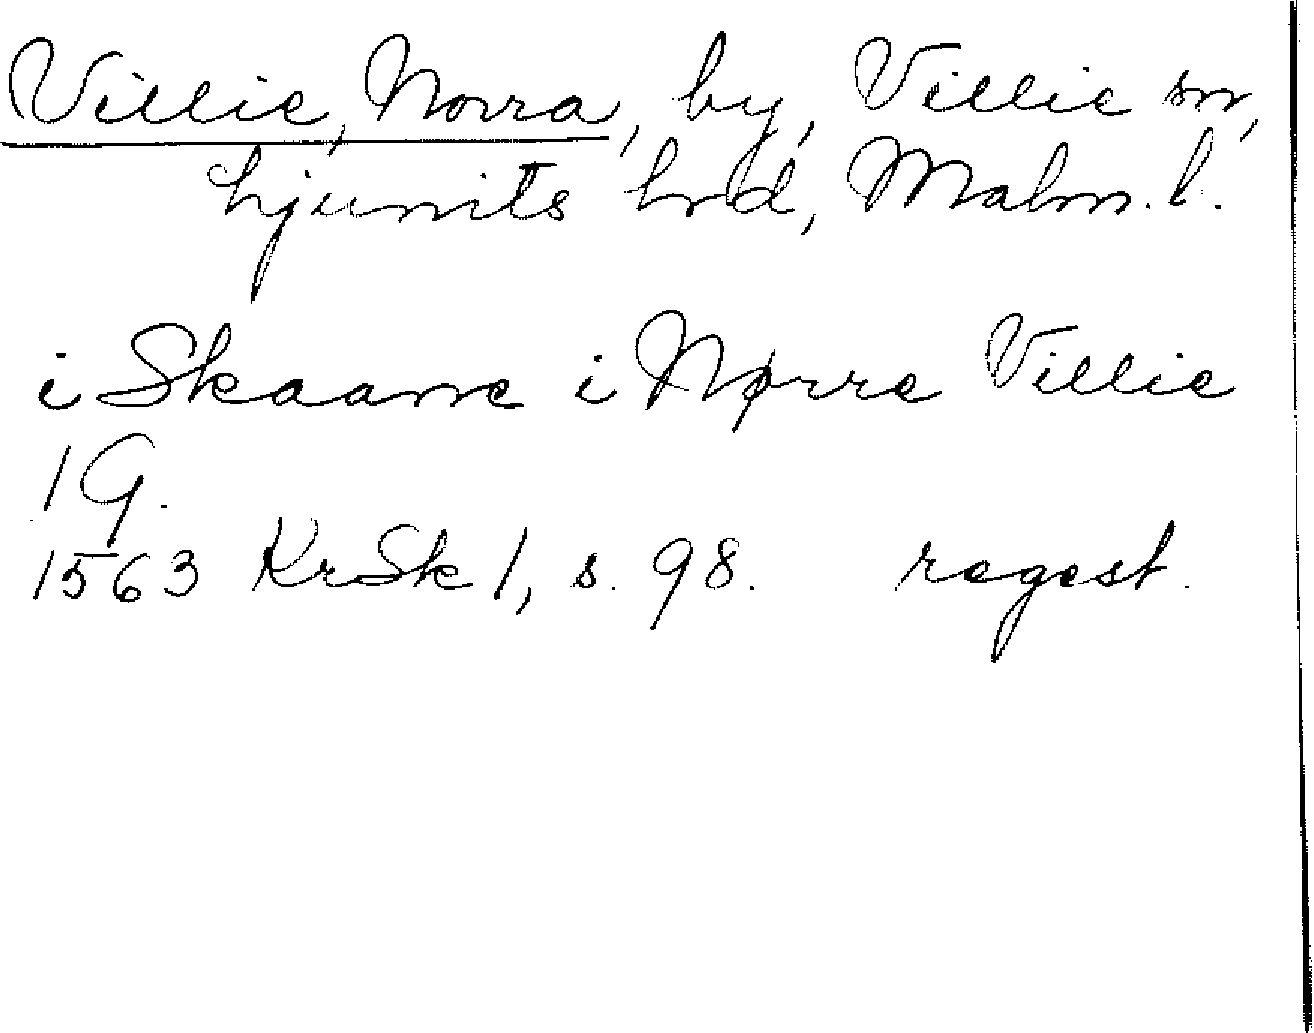 Villie, Norra, by, Villie sn,
Ljunits hrd, Malm. l.
i Skaane i Nørre Villie
1 G.
1563 KrSk 1, s. 98. regest.